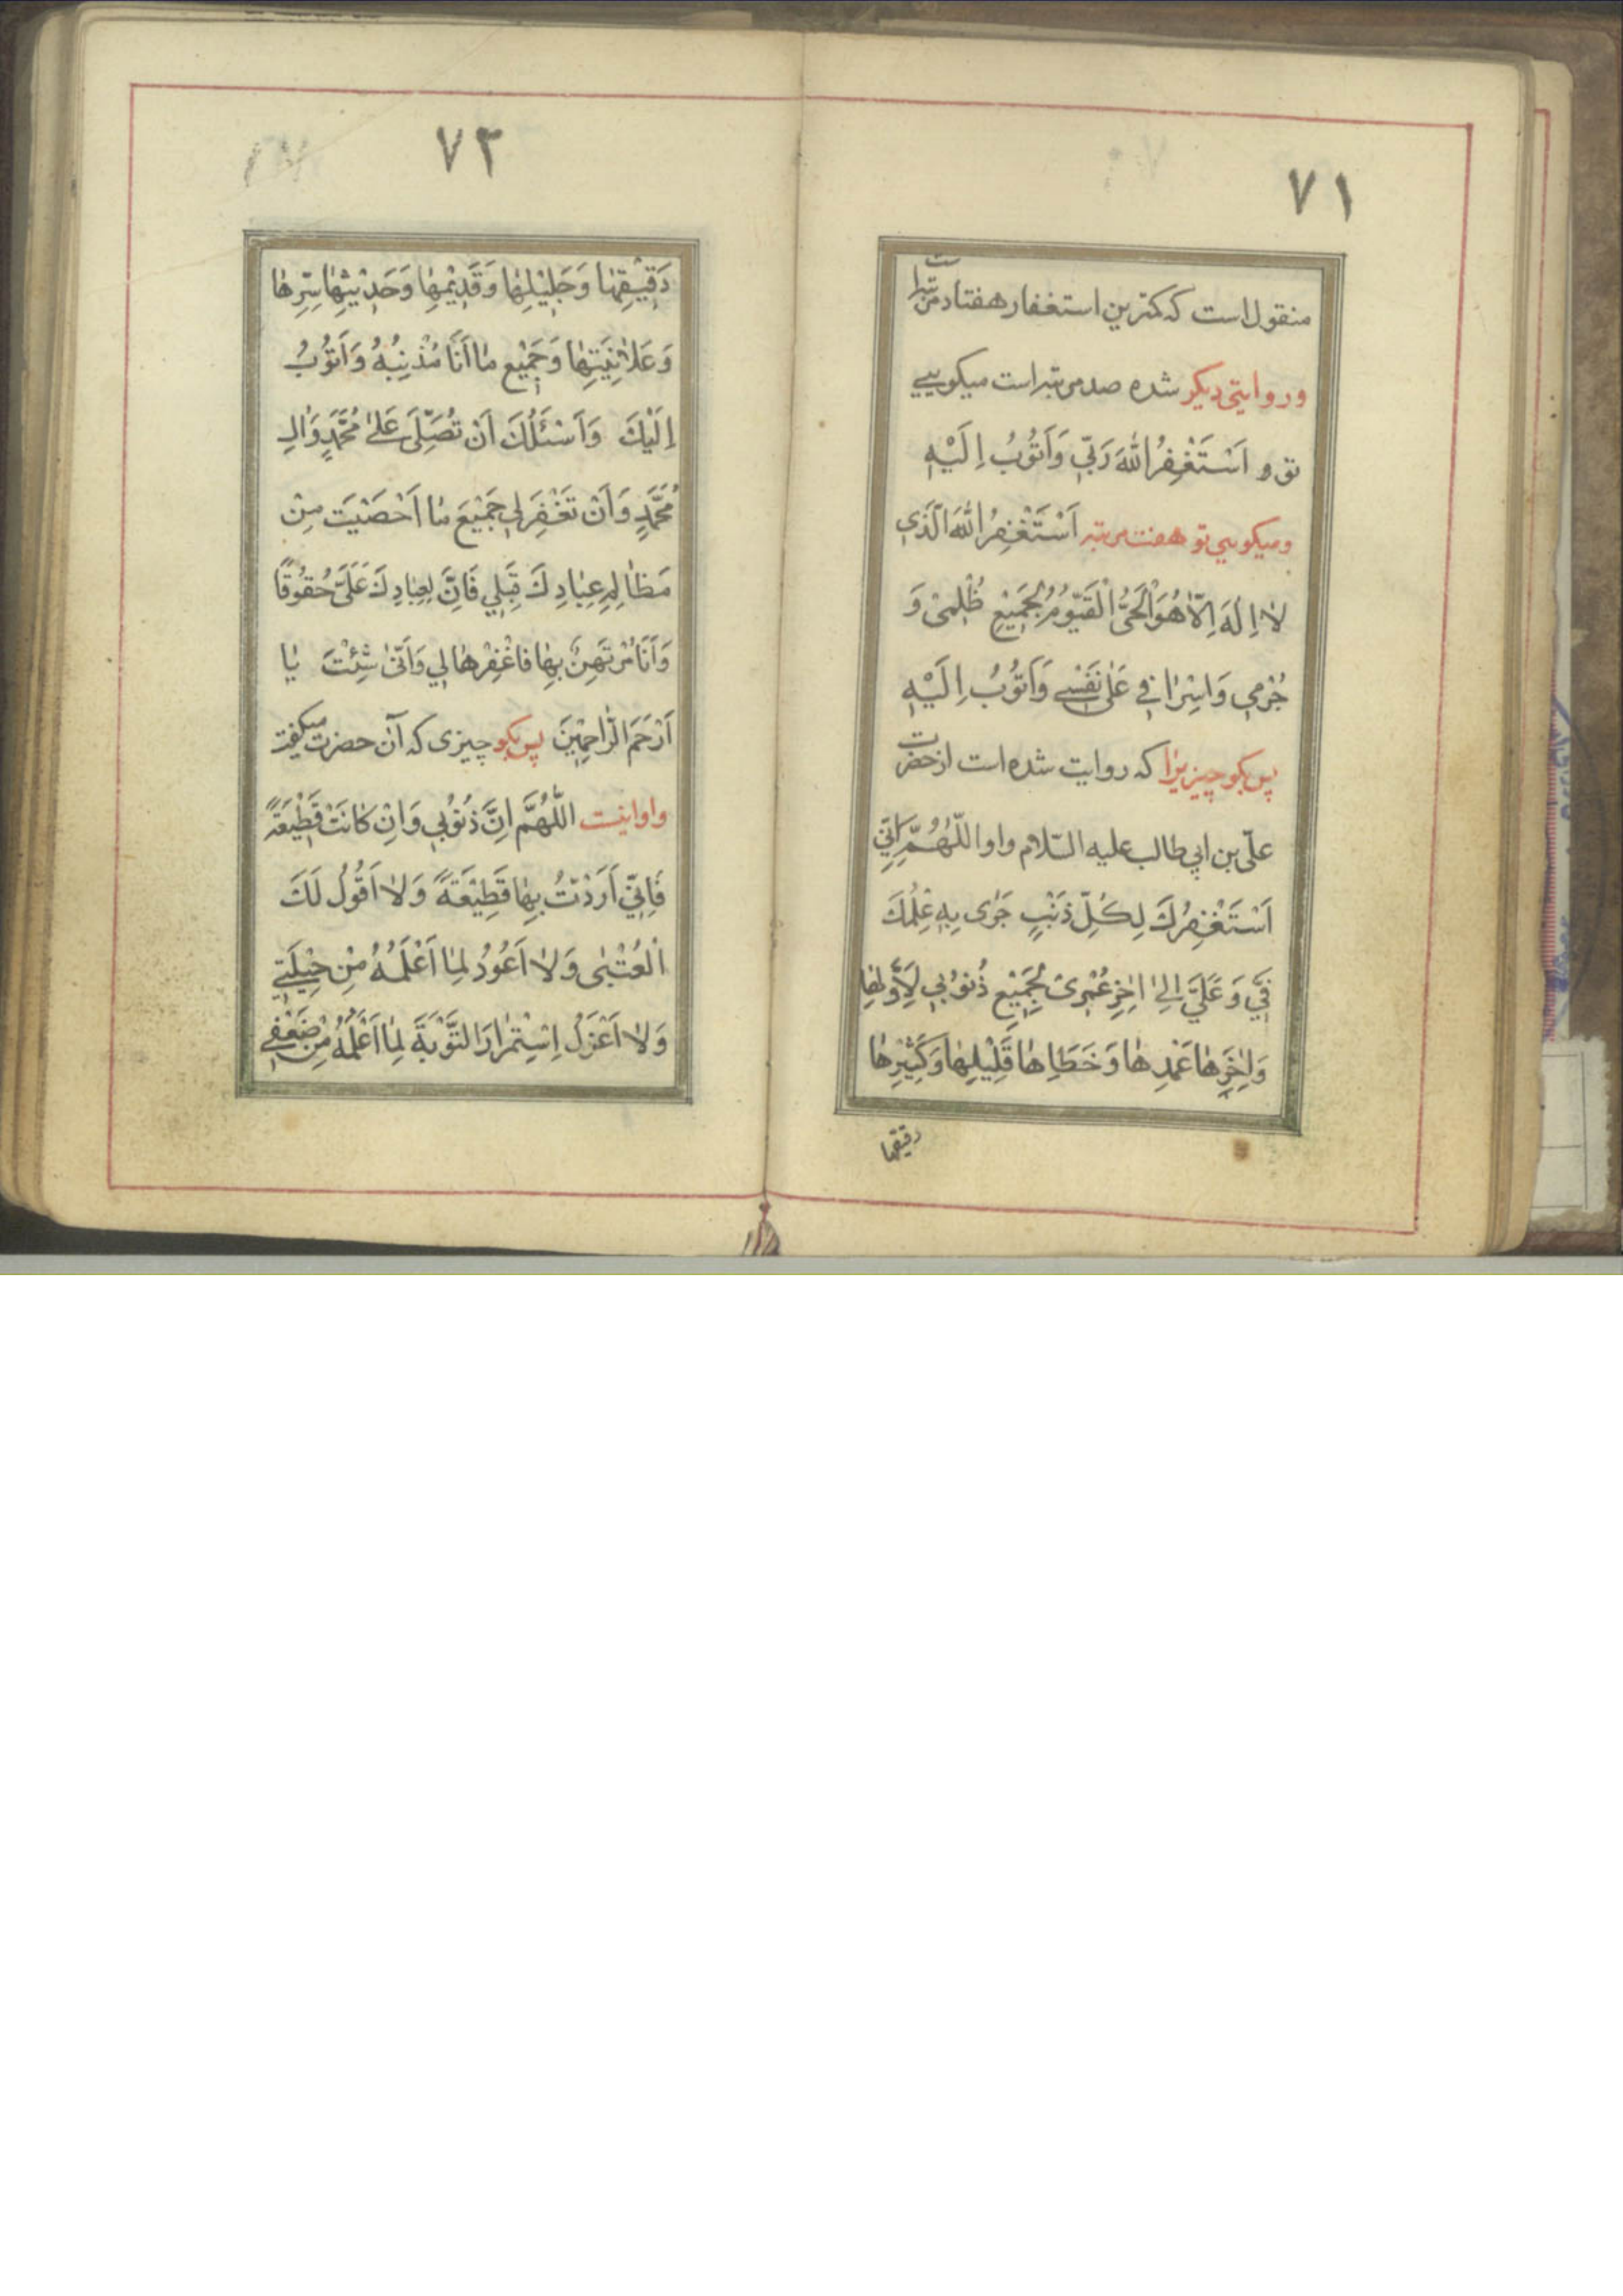 ٧١
منقول است که کمترین استغفار هفتاد مرتبه است
و روایتی دیکر شده صد مرتبه است میکویی
تو و اَسْتَغْفِرُ اللّٰهَ رَبّي وَاَتُوبُ اِلَيْهِ
ومیکویی تو هفت مرتبه اَسْتَغْفِرُ اللّٰهَ الَّذي
لاٰ اِلٰهَ اِلاّٰ هُوَ الْحَيُّ الْقَيّوُمُ لِجَميْعِ ظُلْمىْ وَ
جُرْمي وَاِسْرٰافي عَلىٰ نَفْسي وَاَتُوبُ اِلَيْهِ
پس بکو چیزیرا که روایت شده است از حضرت
علّی بن ابي طالب علیه السّلام و او اَللّٰهُمَّ اِنّي
اَسْتَغْفِرُكَ لِكُلِّ ذَنْبٍ جَرٰى بِهِ عِلْمُكَ
فِيَّ وَ عَلَيَّ اِلىٰ اٰخِرِ عُمْرىْ بِجَميْعِ ذُنوُبي لِاَوَّلِهٰا
وَاٰخِرِهٰا عَمْدِهٰا وَ خَطَاِهٰا قَليْلِهٰا وَكَثيْرِهٰا
دقیقها
٧٢
دَقيْقِهٰا وَجَليْلِهٰا وَقَديْمِهٰا وَحَديْثِهٰا سِرِّهٰا
وَعَلاٰنِيَتِهٰا وَجَميْعِ مٰا اَنَا مُذْنِبُهُ وَاَتوُبُ
اِلَيْكَ وَاَسْئَلُكَ اَنْ تُصَلِّىَ عَلىٰ مُحَمَّدٍ وَاٰلِ
مُحَمَّدٍ وَاَنْ تَغْفِرَ لي جَميْعَ مٰا اَحْصَيْتَ مِنْ
مَظٰالِمِ عِبٰادِكَ قِبَلي فَاِنَّ لِعِبٰادِكَ عَلَىَّ حُقوُقًا
وَاَنَا مُرْتَهِنٌ بِهٰا فَاغْفِرْهٰا لي وَاَنّىٰ شِئْتَ يٰا
اَرْحَمَ الرّٰاحِميْنَ پس بکو چیزی که آن حضرت میکفت
و او اینست اَللّٰهُمَّ اِنَّ ذُنوُبي وَاِنْ كٰانَتْ قَطيْعَةً
فَاِنّي اَرَدْتُ بِهٰا قَطيْعَةً وَلاٰ اَقُولُ لَكَ
الْعُتْبىٰ وَلاٰ اَعُودُ لِمٰا اَعْلَمُهُ مِنْ حيْلَتي
وَلاٰ اَعْزَلُ اِسْتِمْرٰارَ التَّوْبَةَ لِمٰا اَعْلَمُهُ مِنْ ضَعْفي